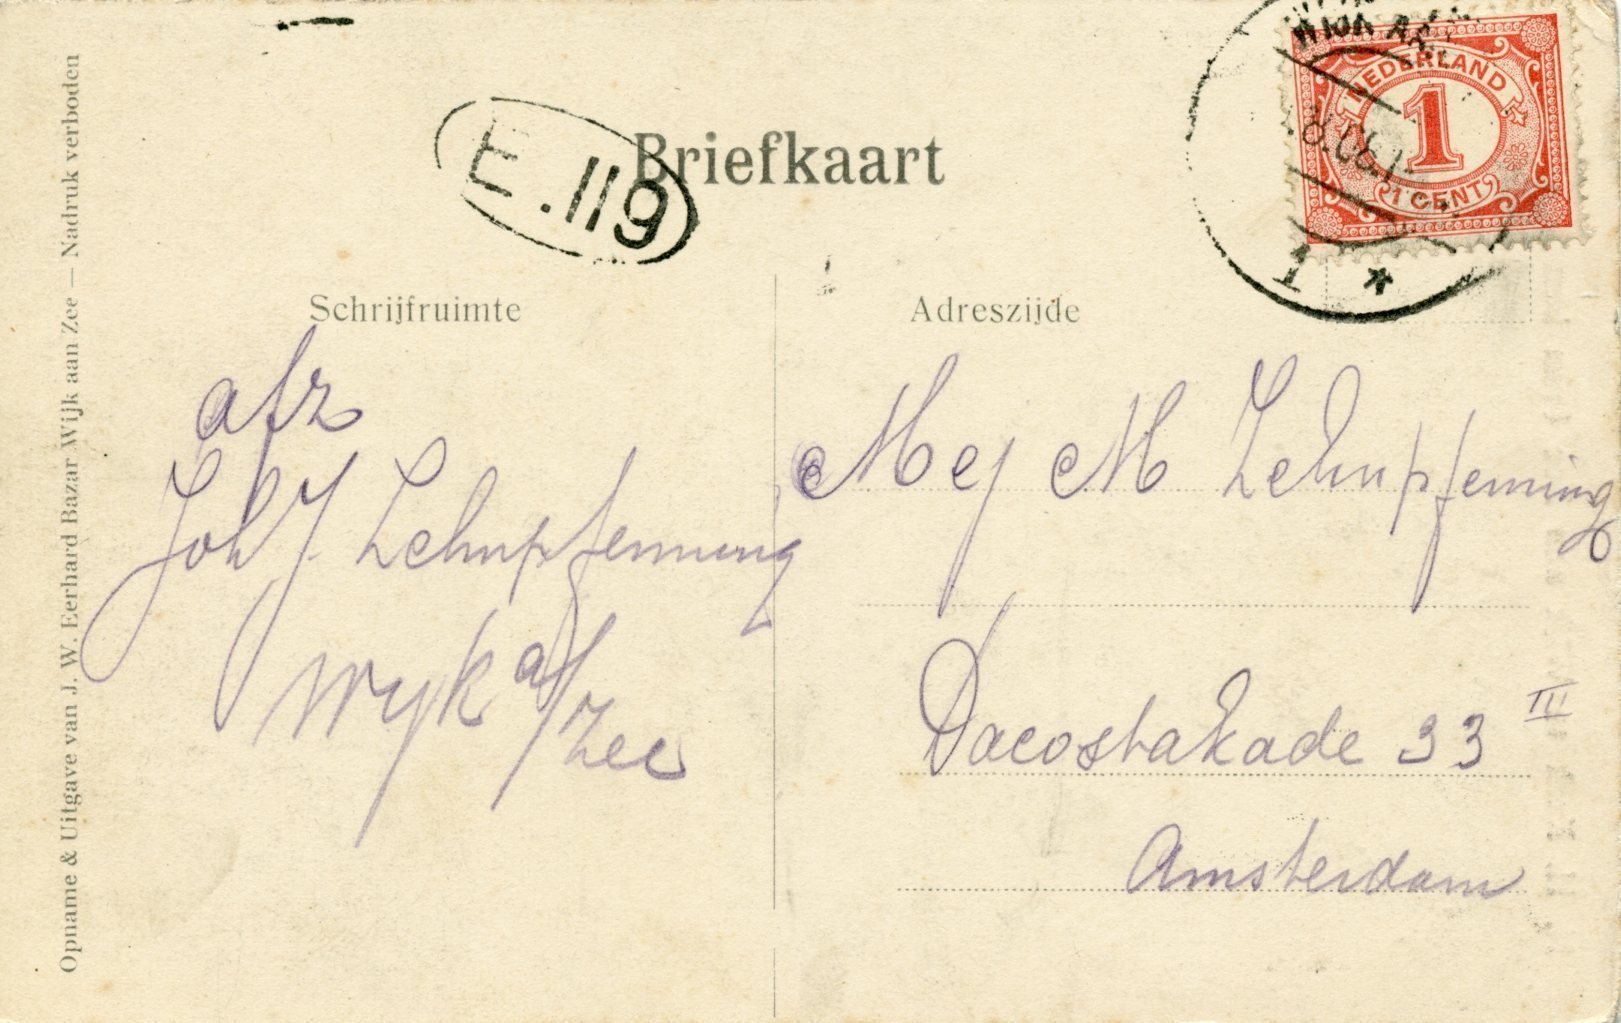 Opname & Uitgave van J. W. Eerhard Bazar Wijk aan Zee — Nadruk verboden
E.119
Briefkaart
WIJK AA
1
NEDERLAND
1
1 CENT
Schrijfruimte
Adreszijde
afz
Joh J. Zehnpfenning
Wyk a/Zee
Mej M Zehnpfenning
Dacostakade 33 III
Amsterdam